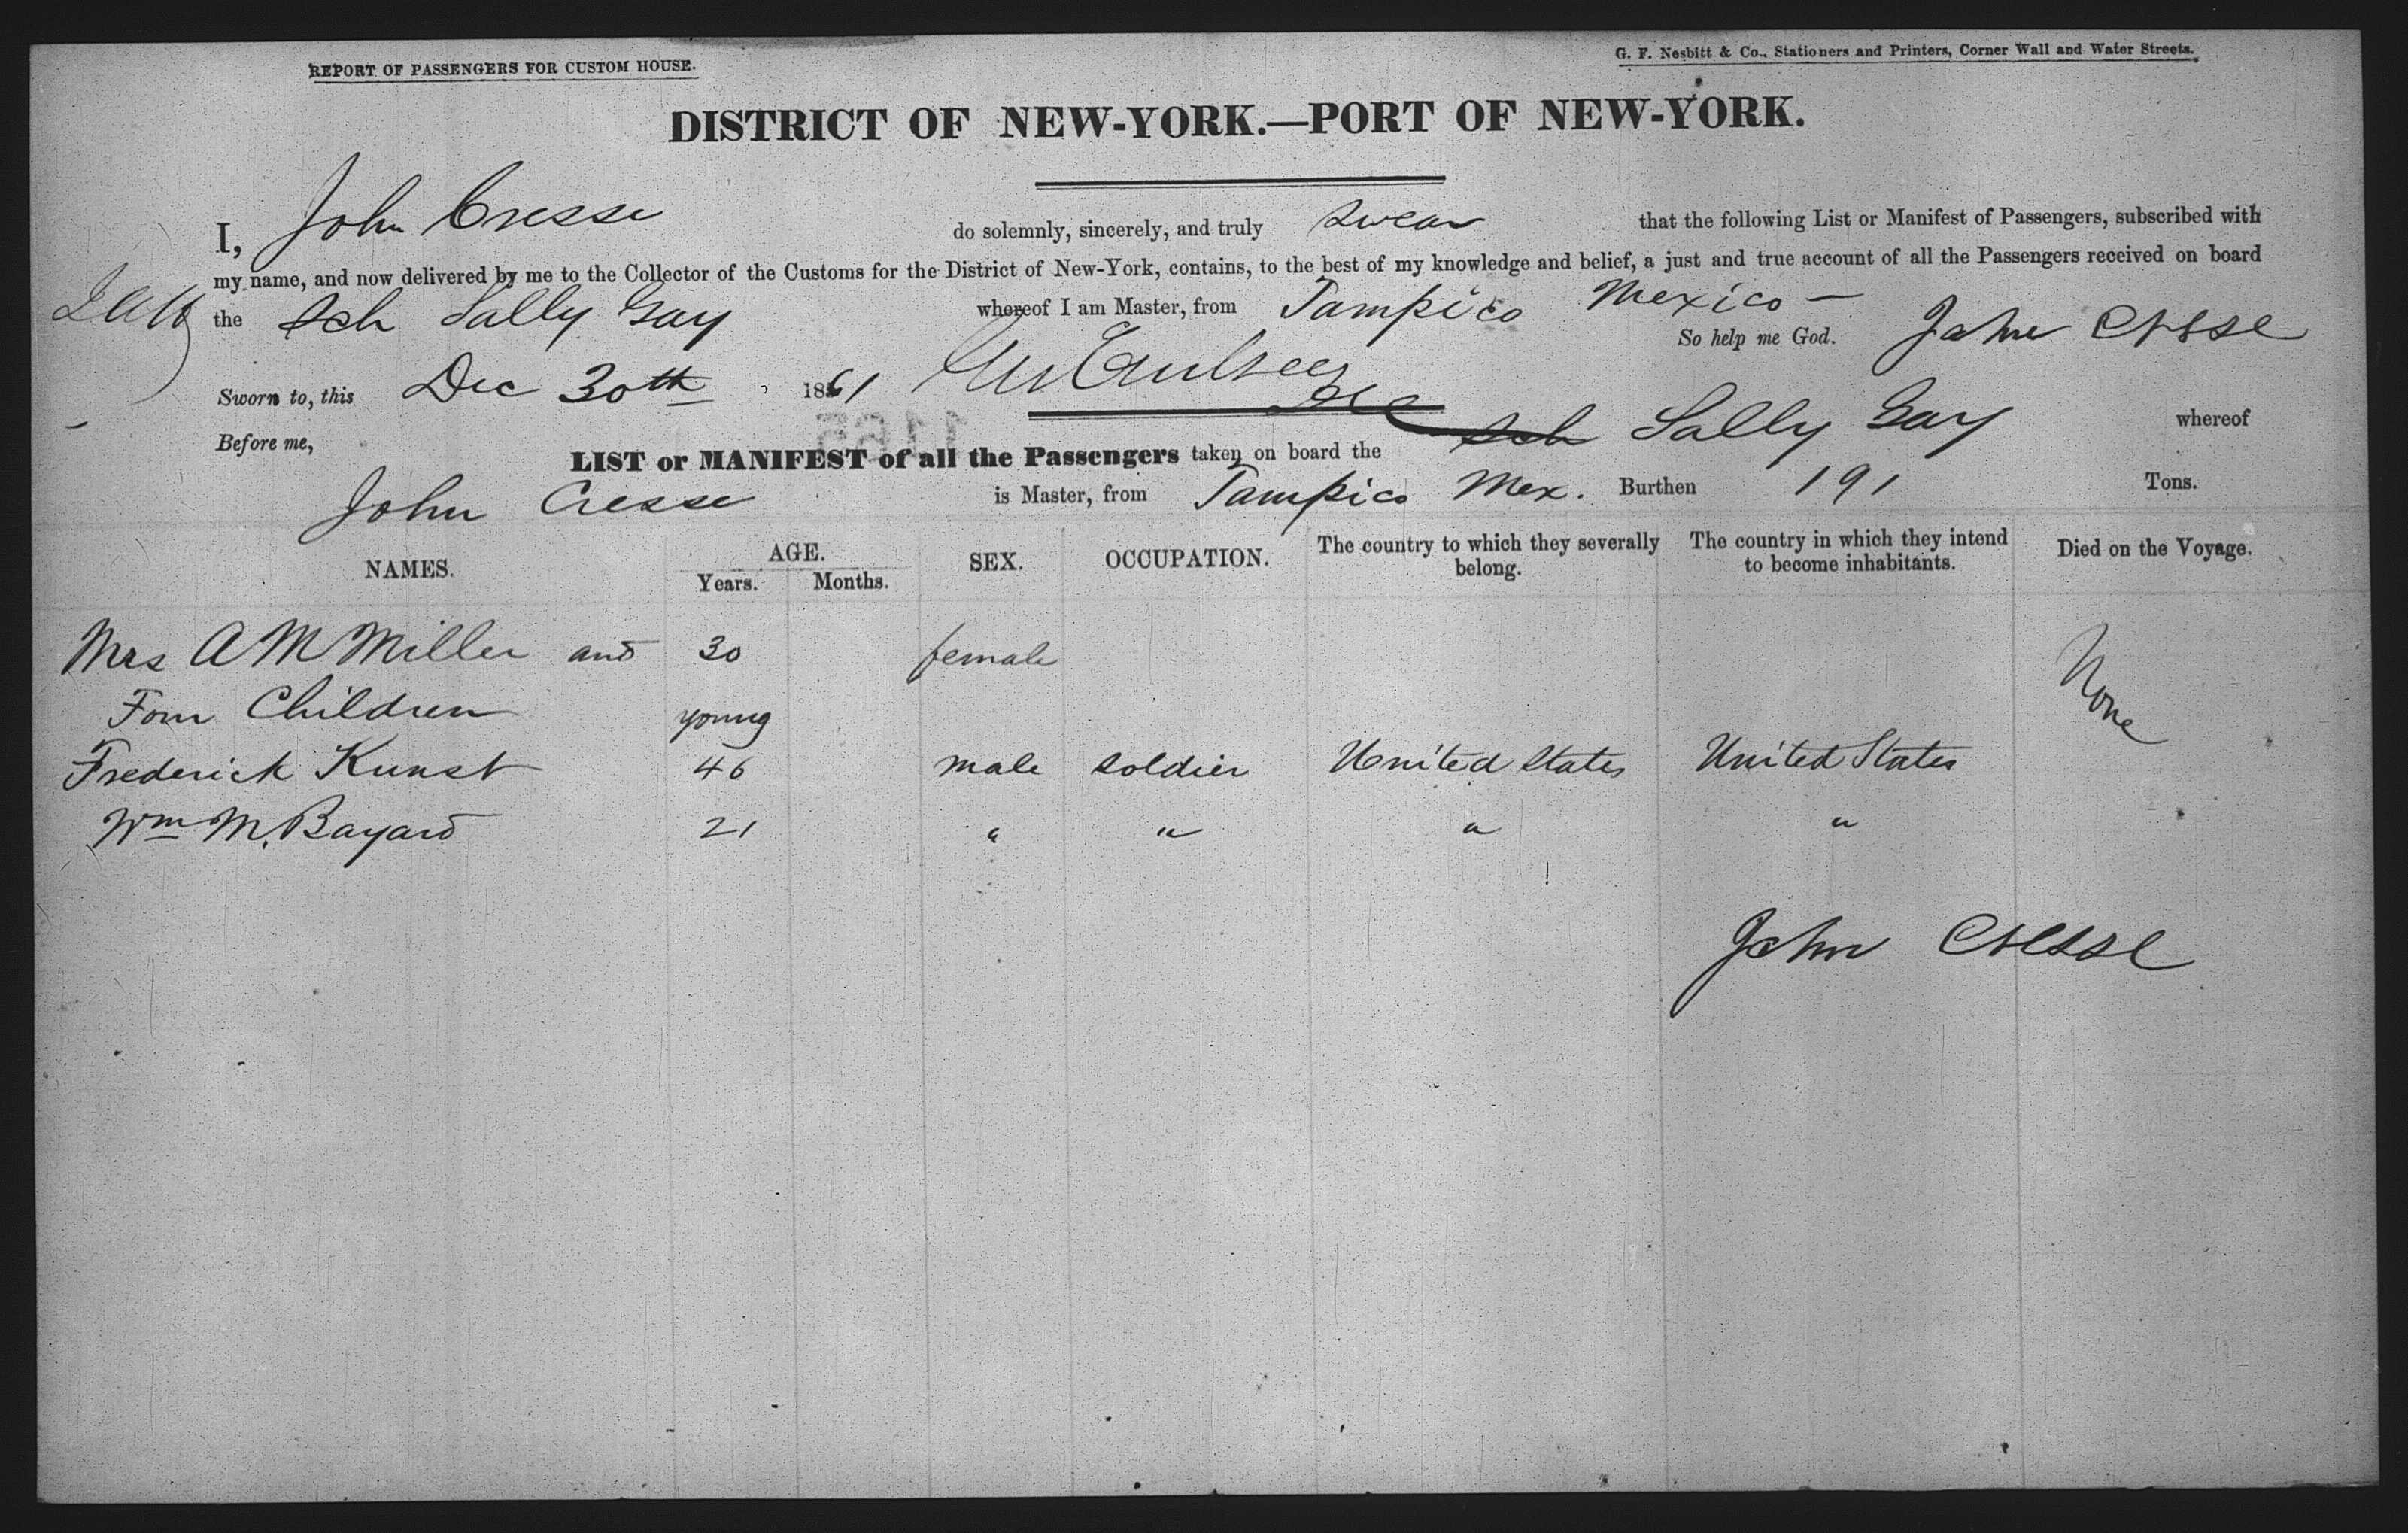 REPORT OF PASSENGERS FOR CUSTOM HOUSE.
G. F. Nesbitt & Co., Stationers and Printers, Corner Wall and Water Streets.
DISTRICT OF NEW-YORK.—PORT OF NEW-YORK.
I, John Cresse do solemnly, sincerely, and truly swear that the following List or Manifest of Passengers, subscribed with
my name, and now delivered by me to the Collector of the Customs for the District of New-York, contains, to the best of my knowledge and belief, a just and true account of all the Passengers received on board
the Sch Sally Gay whereof I am Master, from Tampico Mexico —
So help me God. John Cresse
Sworn to, this Dec 30th 1861
Before me,
1165
LIST or MANIFEST of all the Passengers taken on board the Sch Sally Gay whereof
John Cresse is Master, from Tampico Mex. Burthen 191 Tons.
NAMES. AGE. Years. Months. SEX. OCCUPATION. The country to which they severally belong. The country in which they intend to become inhabitants. Died on the Voyage.
Mrs A M Miller and 30 female None
Four Children young
Frederick Kunst 46 male soldier United States United States
Wm M. Bayard 21 " " " "
John Cresse